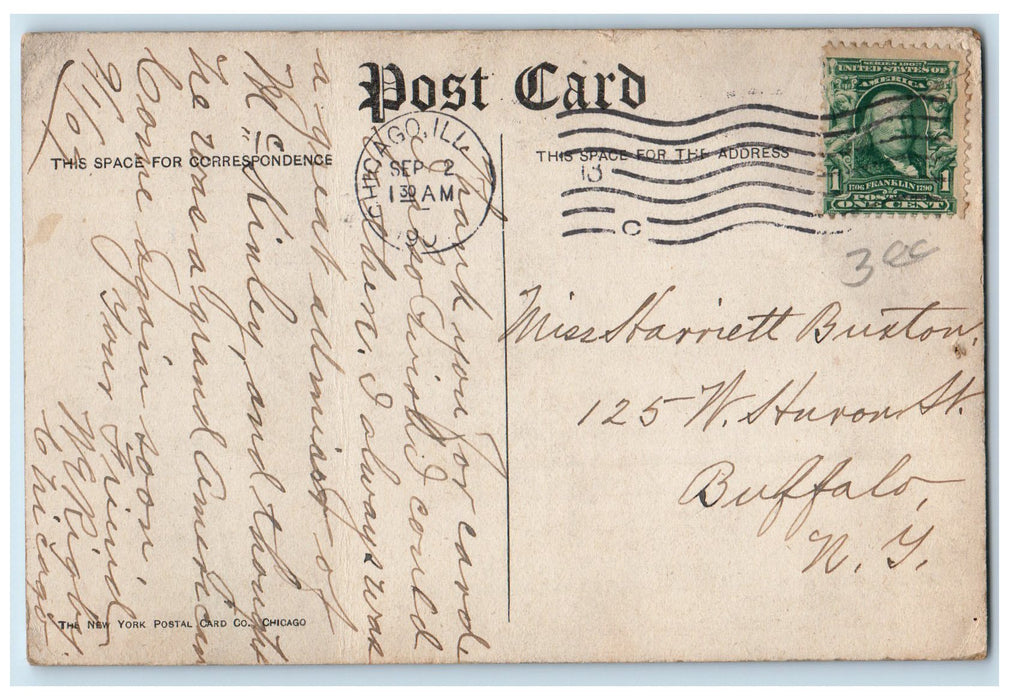 Post Card
THIS SPACE FOR CORRESPONDENCE
THIS SPACE FOR THE ADDRESS
CHICAGO, ILL.
SEP 2
1 30 AM
190
13
C
SERIES 1902
UNITED STATES OF
AMERICA
1 1
1706 FRANKLIN 1790
POSTAGE
ONE CENT
3 00
Miss Harriett Buxton,
125 W. Huron St.
Buffalo,
N. Y.
Thank you for card.
so I could
then. I always was
a great admirer of
McKinley, and thought
he was a grand American
Come again soon.
Your Friend
W G Rigby.
Chicago
9/1/07
THE NEW YORK POSTAL CARD CO., CHICAGO